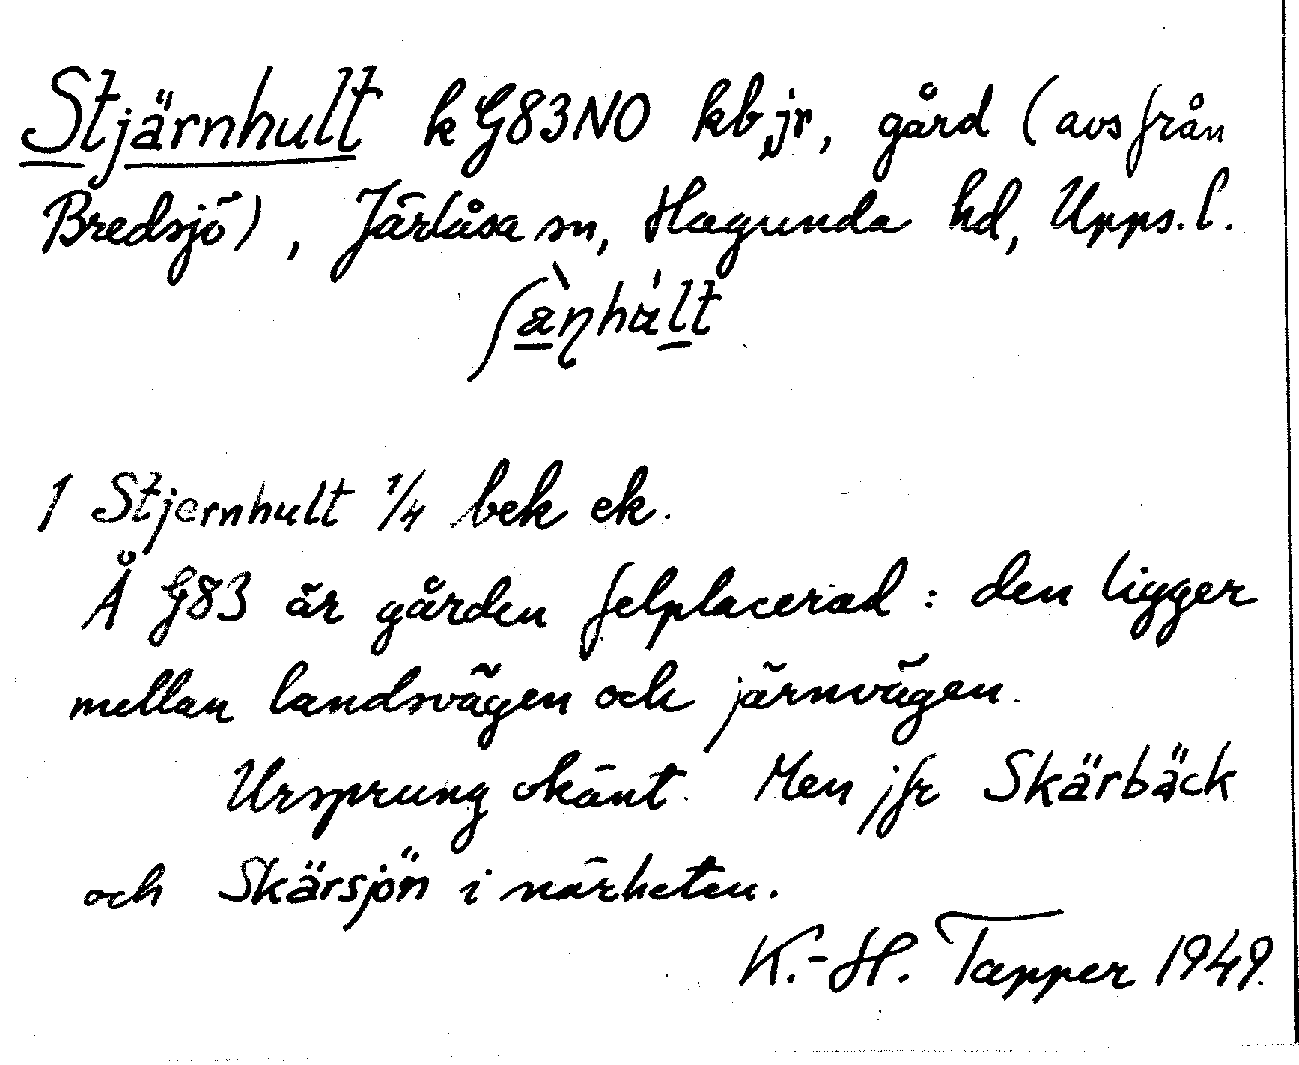 Stjärnhult k G83NO kb, jr, gård (avs från
Bredsjö), Järlåsa sn, Hagunda hd, Upps.l.
1 Stjernhult 1/4 bek ek.
Å G83 är gården felplacerad: den ligger
mellan landsvägen och järnvägen.
Ursprung okänt. Men jfr Skärbäck
och Skärsjön i närheten.
K.-H. Tapper 1949.